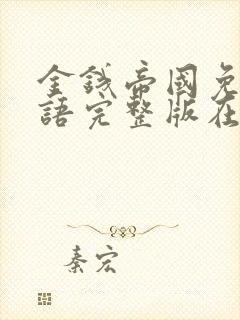 金錢帝國免
語完整版在
秦宏